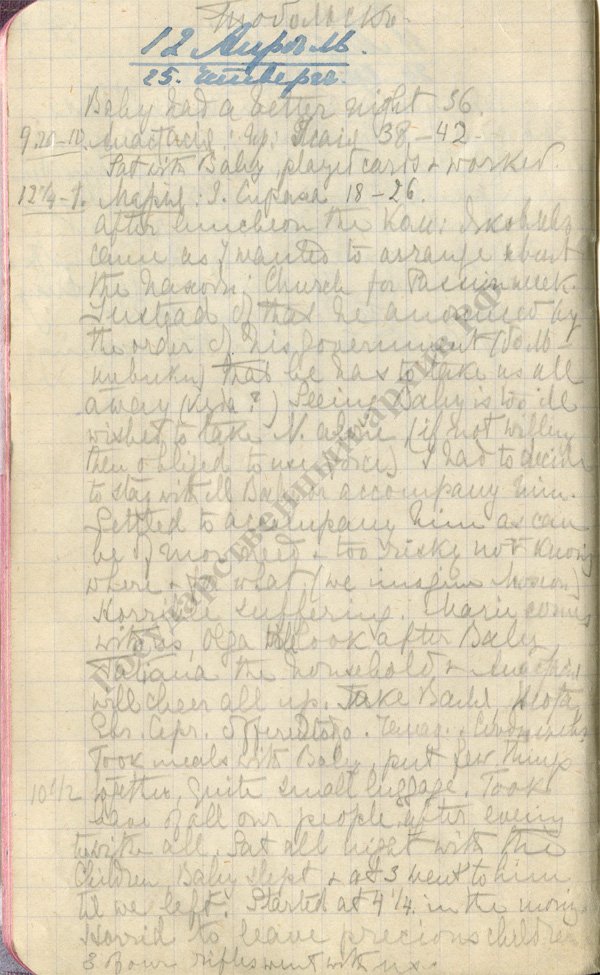 Тобольскъ.
12 Апрѣль.
25. Четвергъ.
Baby had a better night 36.
9.20-10. Anastasia: Isaia 38-42.
Sat with Baby, played cards & worked.
12¼-1. Марія: I. Сираха 18-26.
after luncheon the Kom: Яковлевъ
came as I wanted to arrange about
the Church for Passion week.
Instead of that he announced by
the order of his government
that he has to take us all
away (куда?) Seeing Baby is too ill
wished to take N. alone (if not willing
then obliged to use force) I had to decide
to stay with ill Baby or accompany him.
Settled to accompany him as can
be of more need & too risky not knowing
where & for what. (we imagine Moscow)
Horrible suffering. Marie comes
with us, Olga will look after Baby,
Tatiana the household & Anastasia
will cheer all up. Take
Took meals with Baby, put few things
10½ together, quite small luggage. Took
leave of all our people after evening
tea with all. Sat all night with the
Children. Baby slept & at 3 went to him
til we left. Started at 4¼. in the morning.
Horrid to leave precious children.
3 of our rifles went with us.
Государственный архив РФ